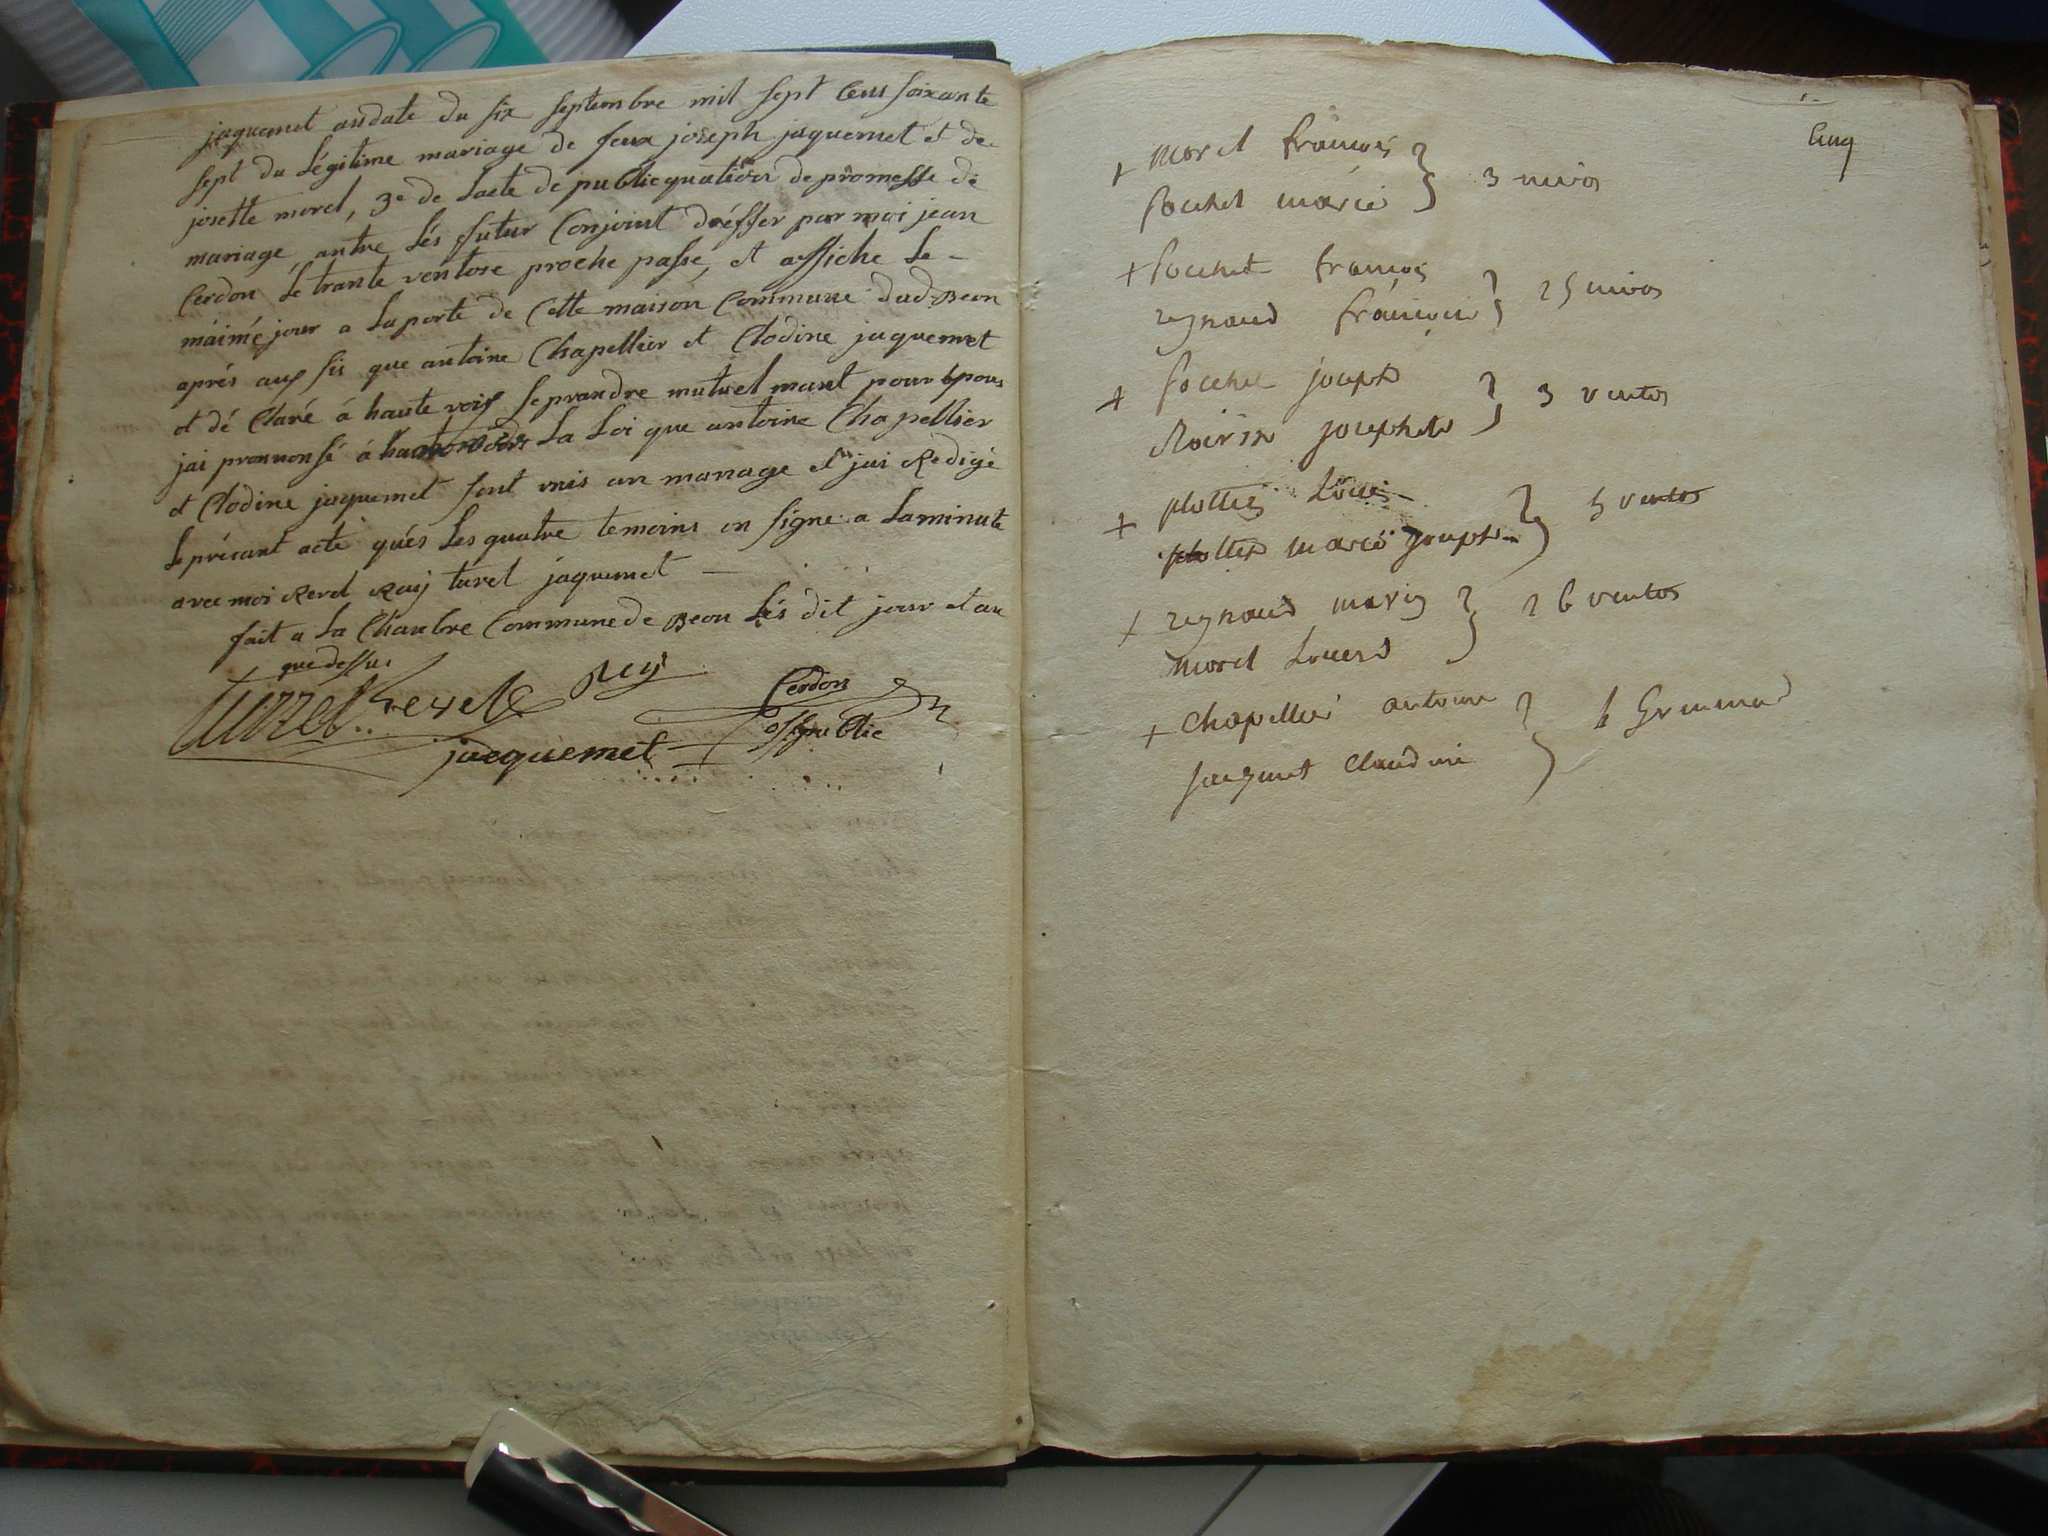 jaquemet andate du six septembre mil sept Cens soixante
sept du Légitime mariage de feux joseph jaquemet et de
josette morel, 3e de Lacte de publicquations de promesse de
mariage antre Lés futur Conjoint dréssér par moi jean
Cerdon Le trante ventose proche passe, et affiche Le -
maimé jour a Laporte de Cette maison Commune dud Beon
aprés aus si que antoine Chapellier et Clodine jaquemet
et dé Claré á haute voix seprandre mutuel mant pour epous
jai prononsé á La Loi que antoine Chapellier
et Clodine jaquemet sont unis an mariage et jai Redigé
Le présant acte qués Les quatre temoins on signe a Laminute
avec moi Revel Raij turel jaquemet -
fait a La Chanbre Commune de Beon Lés dit jour et an
que dessus
turrel Revel Rey Cerdon
jacquemet off public
Cinq
+ morel francois } 3 nivos
pochet marie
+ pochet francois } 25 nivos
reynaud francoise
+ pochet joseph } 3 ventos
josephete
+ plottier Louis } 5 ventos
plottier marie josephe
+ reynaud marin } 26 ventos
morel
+ Chapellier antoine } Germinal
jacquemet Claudine